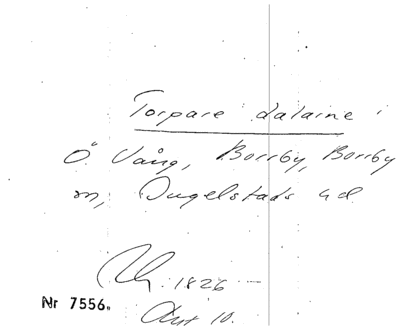 Torpare i dalarne
Ö Vång, Borrby, Borrby
sn, Ingelstads hd
1826
Nr 7556.
10.